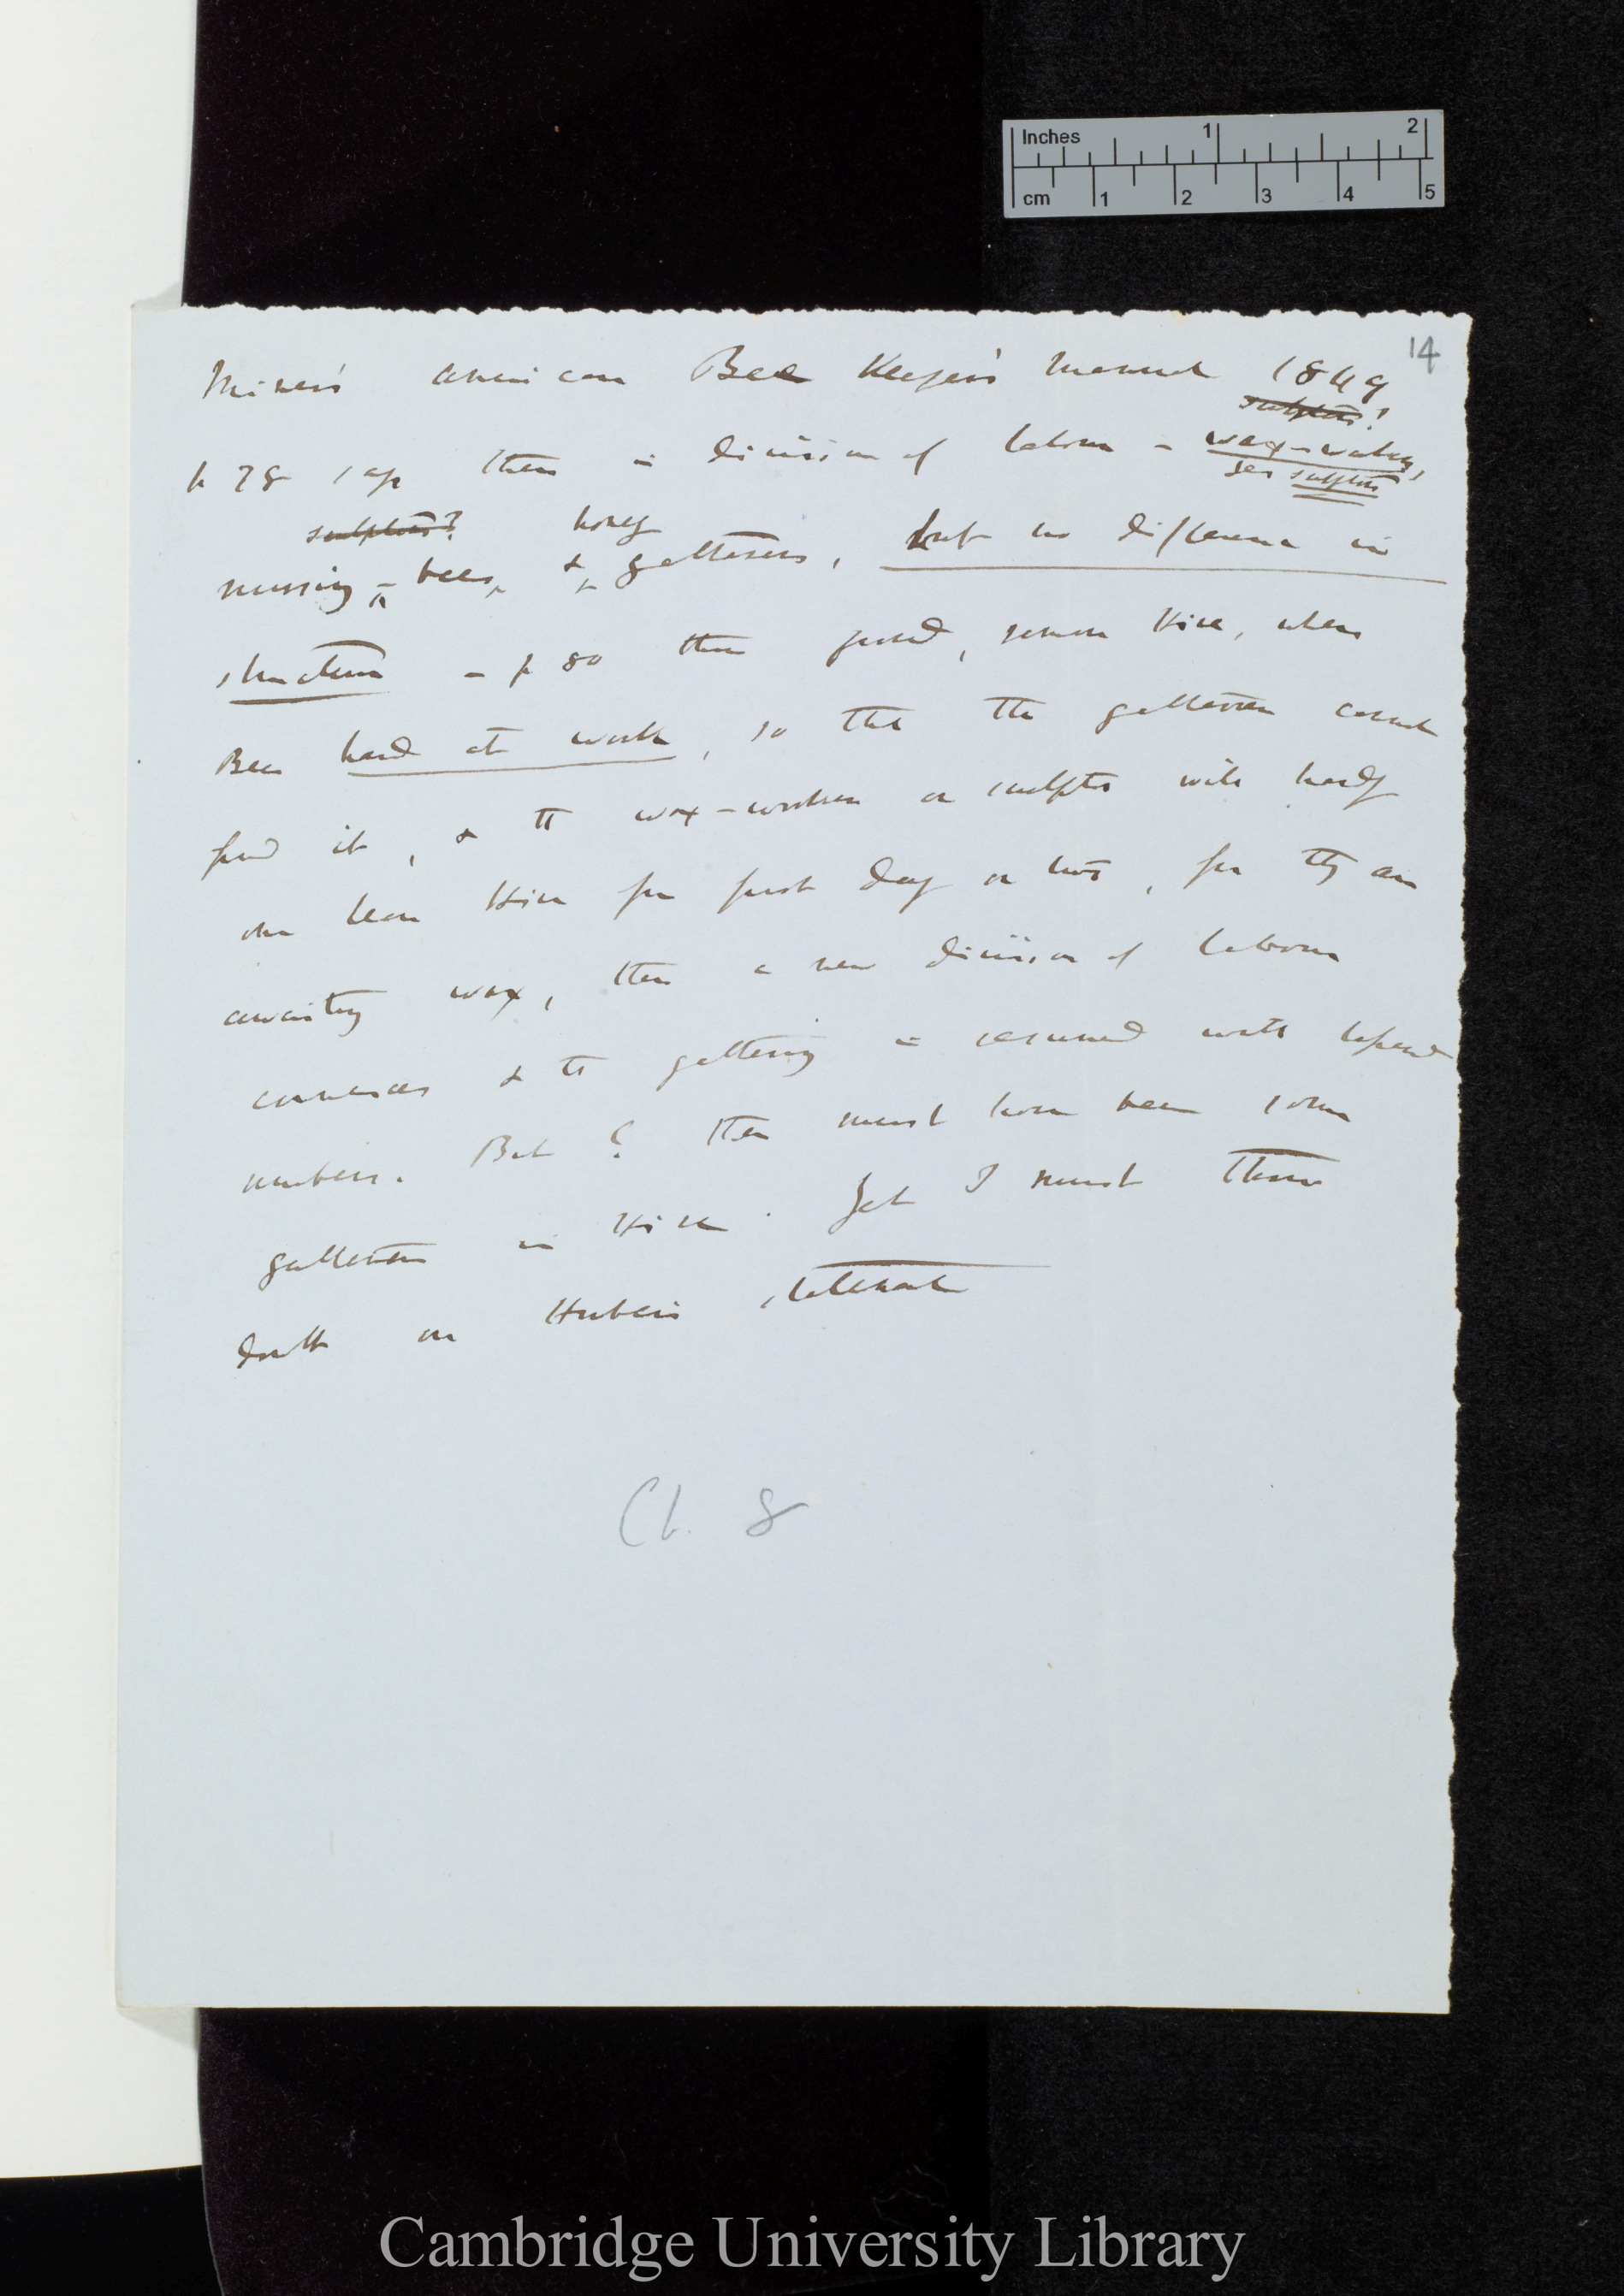 Inches 1 2
cm 1 2 3 4 5
14
Miner's American Bee Keeper's Manual 1849
sculptors?
p 78 says there is division of labour — wax-workers,
ger sculptors
sculptors? honey
nursing - bees, & gatherers, but no difference in
structure — p 80 this proved, remove Hive, when
Bees hard at work, so that the gatherers cannot
find it, & the wax-workers or sculptors will hardly
ever leave Hive for first day or two, for they are
awaiting wax, then a new division of labour
commences & the gathering is resumed with
numbers. But ? there must have been some
gatherers in Hive. Yet I must throw
doubt on Huber's statement
Ch. 8
Cambridge University Library